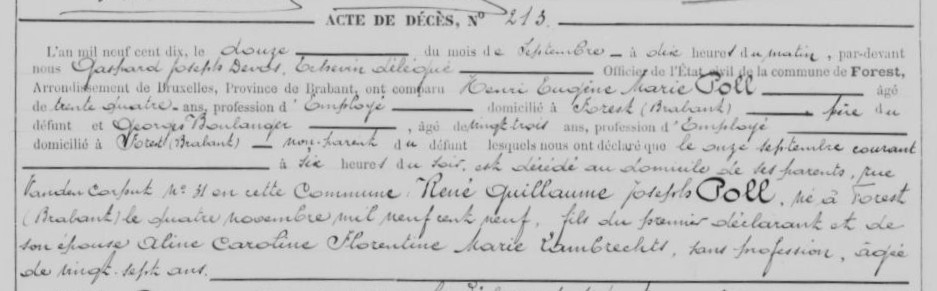 ACTE DE DÉCÈS, N° 213.
L'an mil neuf cent dix, le douze du mois de Septembre à dix heures du matin, par-devant
nous Gaspard Joseph Devos, Echevin délégué Officier de l'État civil de la commune de Forest,
Arrondissement de Bruxelles, Province de Brabant, ont comparu Henri Eugène Marie Poll âgé
de trente quatre ans, profession d'Employé domicilié à Forest (Brabant) père du
défunt et Georges Boulanger, âgé de vingt trois ans, profession d'Employé
domicilié à Forest (Brabant) non-parent du défunt lesquels nous ont déclaré que le onze septembre courant
à six heures du soir, est décédé au domicile de ses parents, rue
Vanden Corput N° 31 en cette Commune, René Guillaume Joseph Poll, né à Forest
(Brabant) le quatre novembre mil neuf cent neuf, fils du premier déclarant et de
son épouse Aline Caroline Florentine Marie Lambrechts, sans profession, âgée
de vingt-sept ans.